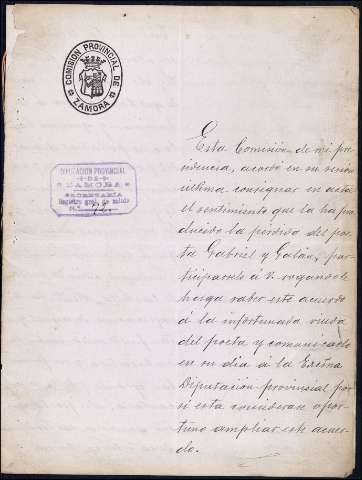 COMISIÓN PROVINCIAL DE
ZAMORA
DIPUTACIÓN PROVINCIAL
DE
ZAMORA
SECRETARÍA
Registro gral. de salida
N.º
Esta Comisión de mi pre
sidencia, acordó en su sesión
última consignar en acta
el sentimiento que la ha pro
ducido la pérdida del poe
ta Gabriel y Galán, par
ticipárselo á V. rogándole
haga saber este acuerdo
á la infortunada viuda
del poeta y comunicarlo
en su día á la Excma
Diputación provincial por
si esta considerase opor
tuno ampliar este acuer
do.